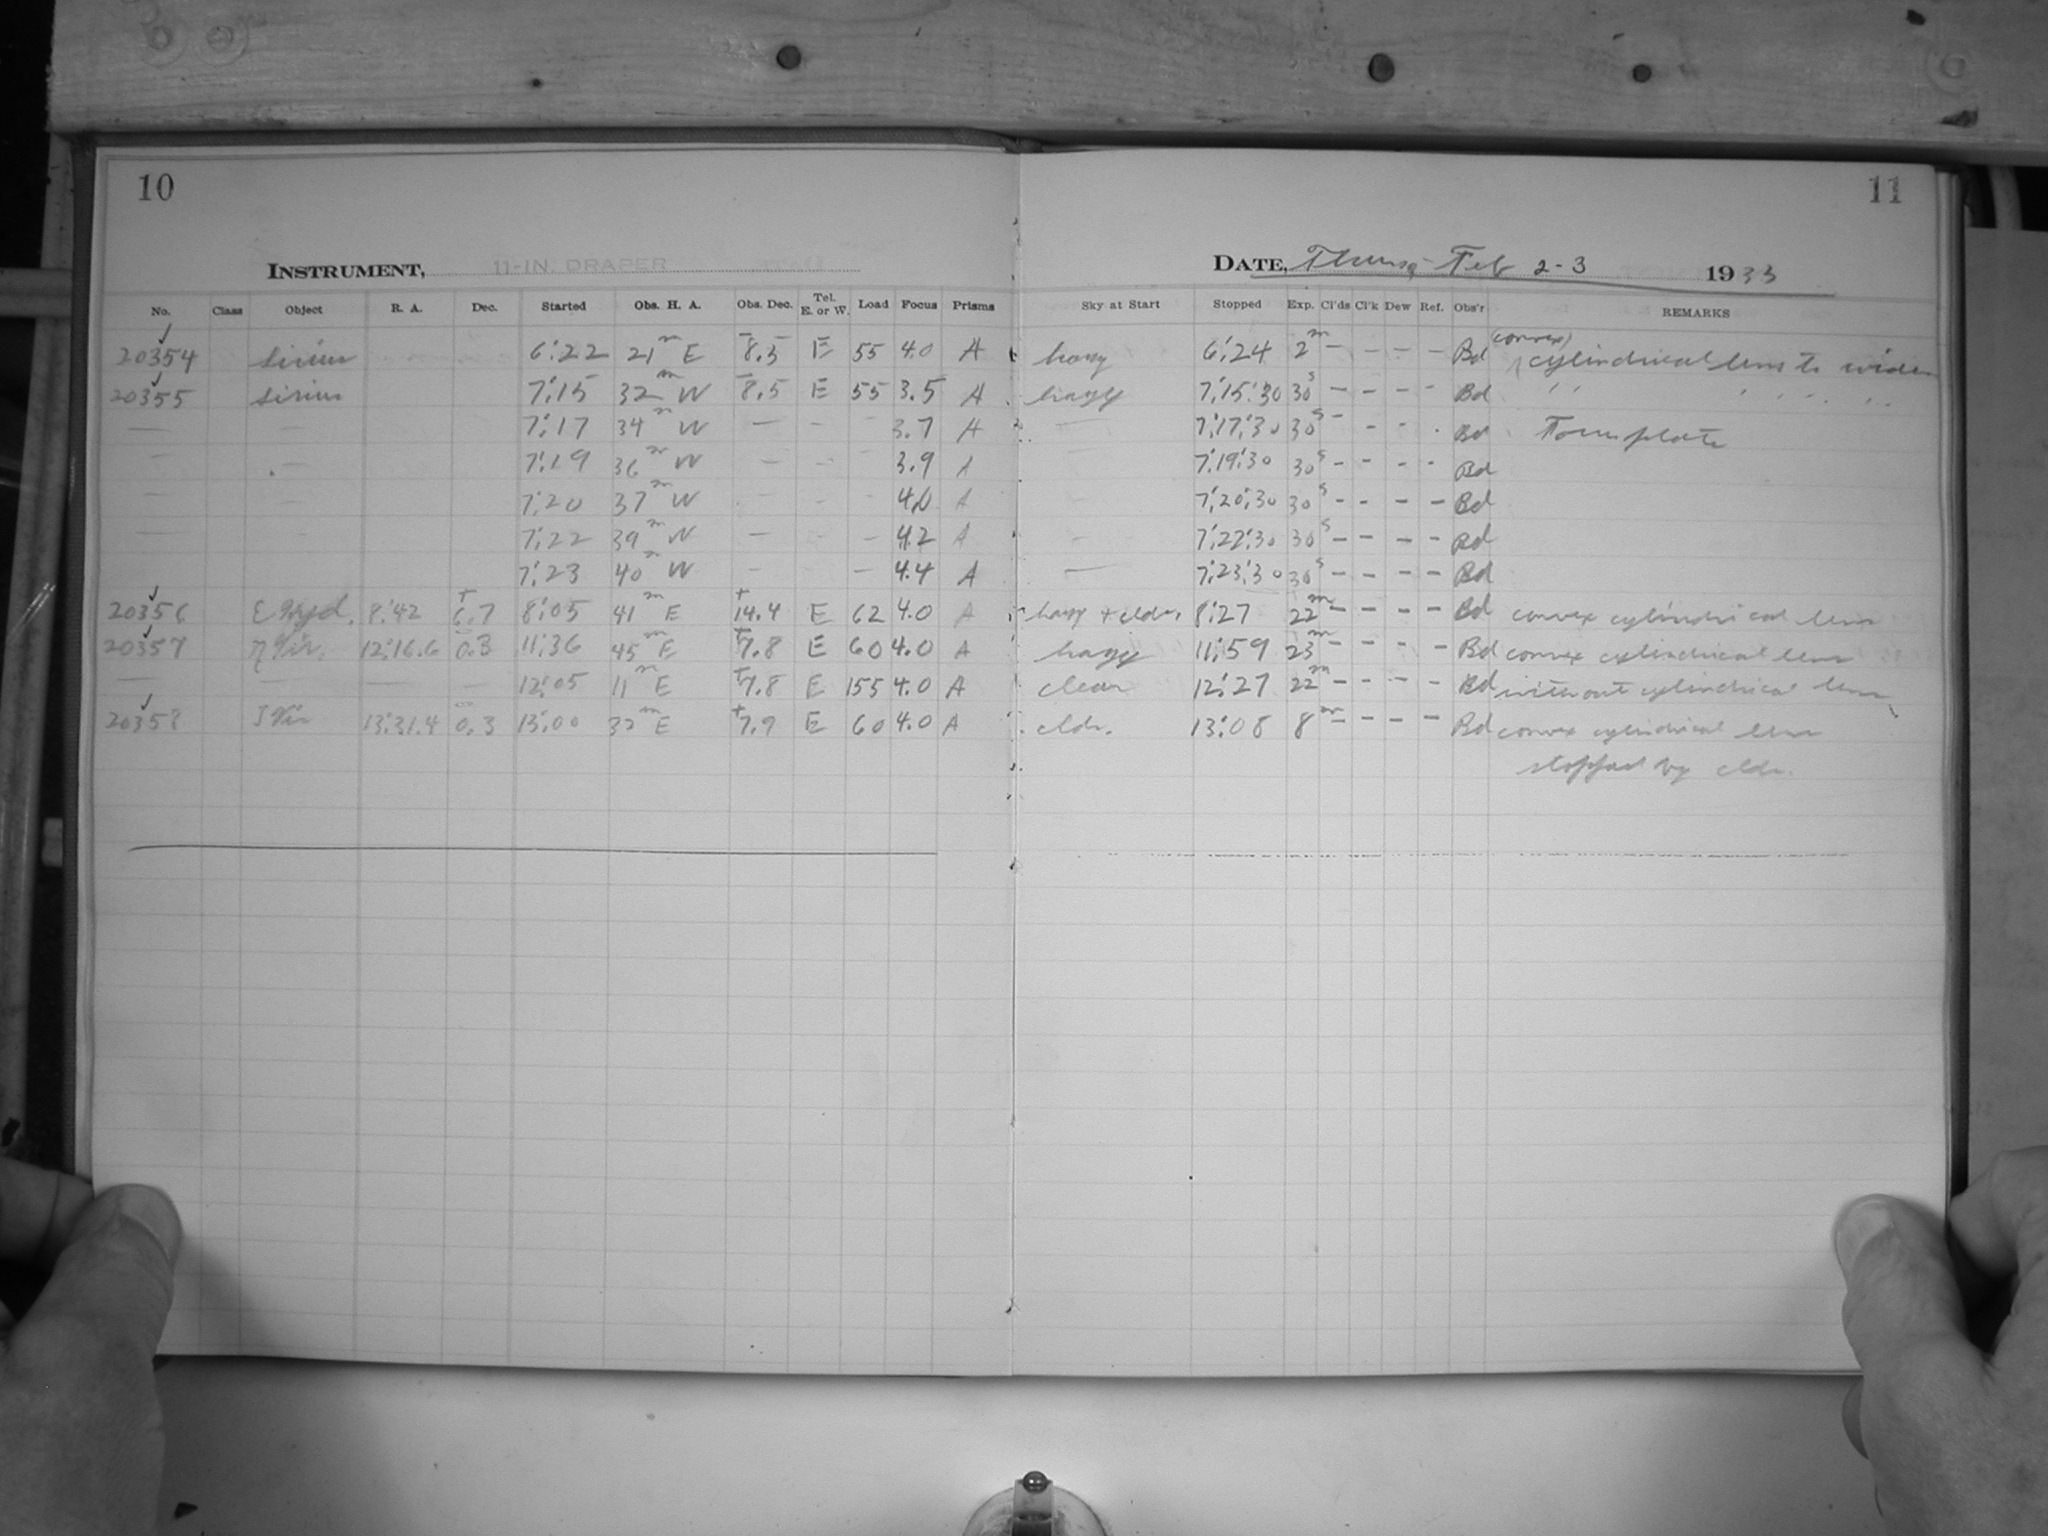 10
11
INSTRUMENT, 11-IN. DRAPER
DATE, Thurs. Feb 2-3 1933
No. Class Object R. A. Dec. Started Obs. H. A. Obs. Dec. Tel. E. or W. Load Focus Prisms Sky at Start Stopped Exp. Cl'ds Cl'k Dew Ref. Obs'r REMARKS
20354 Sirius 6:22 21m E -8.5 E 55 4.0 A hazy 6:24 2m - - - - Bd (convex) cylindrical lens to widen
20355 Sirius 7:15 32m W -8.5 E 55 3.5 A hazy 7:15:30 30s - - - - Bd " " " " " "
— — 7:17 34m W — - - 3.7 A — 7:17:30 30s - - - - Bd Focus plate
— — 7:19 36m W — - - 3.9 A — 7:19:30 30s - - - - Bd
— — 7:20 37m W — - - 4.0 A — 7:20:30 30s - - - - Bd
— — 7:22 39m W — - - 4.2 A — 7:22:30 30s - - - - Bd
7:23 40m W — - - 4.4 A — 7:23:30 30s - - - - Bd
20356 ε Hyd. 8:42 +6.7 8:05 41m E +14.4 E 62 4.0 A hazy + clds. 8:27 22m - - - - Bd convex cylindrical lens
20357 η Vir. 12:16.6 -0.3 11:36 45m E +7.8 E 60 4.0 A hazy 11:59 23m - - - - Bd convex cylindrical lens
— — — — 12:05 11m E +7.8 E 155 4.0 A clear 12:27 22m - - - - Bd without cylindrical lens
20358 ζ Vir 13:31.4 -0.3 13:00 32m E +7.9 E 60 4.0 A clds. 13:08 8m - - - - Bd convex cylindrical lens
stopped by clds.